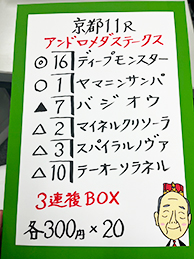 京都11R
アンドロメダステークス
◎ 16 ディープモンスター
○ 1 ヤマニンサンパ
▲ 7 バジオウ
△ 2 マイネルクリソーラ
△ 3 スパイラルノヴァ
△ 10 テーオーソラネル
3連後BOX
各300円×20